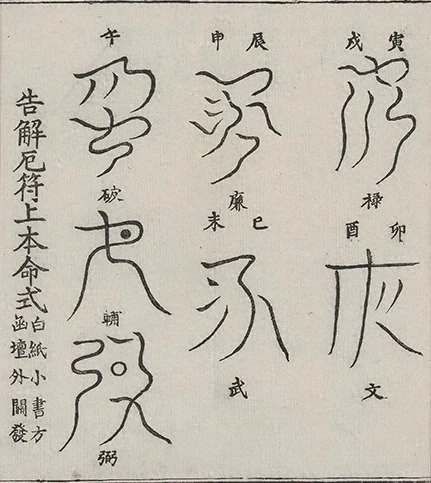 寅戌
祿
卯酉
文
辰申
廉
巳未
武
午
破
輔
弼
告解厄符上本命式
白紙小書方
函壇外關發